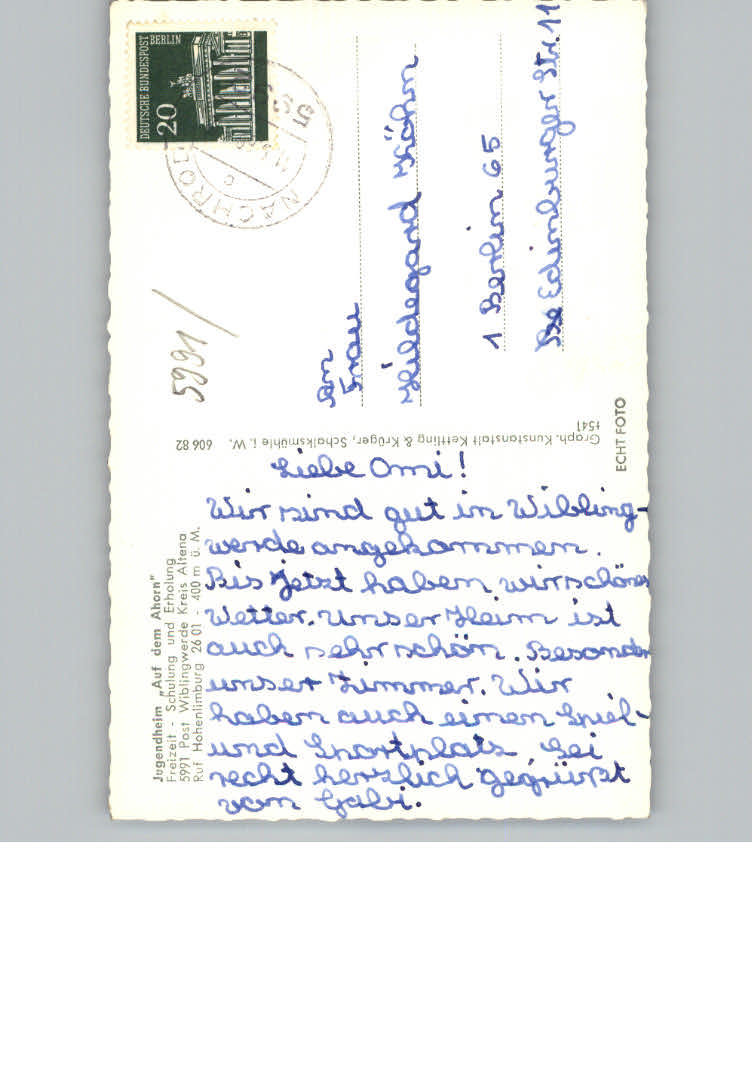 Jugendheim „Auf dem Ahorn"
Freizeit - Schulung und Erholung
5991 Post Wiblingwerde Kreis Altena
Ruf Hohenlimburg 26 01 - 400 m ü. M.
Liebe Omi!
Wir sind gut in Wibling-
werde angekommen.
Bis jetzt haben wir schönes
Wetter. Unser Heim ist
auch sehr schön. Besonders
unser Zimmer. Wir
haben auch einen Spiel-
und Sportplatz. Sei
recht herzlich gegrüßt
von Gabi.
Graph. Kunstanstalt Kettling & Krüger, Schalksmühle i. W. 606 82
1541
ECHT FOTO
5991/
DEUTSCHE BUNDESPOST
BERLIN
20
NACHROD
An
Frau
Hildegard Köhn
1 Berlin 65
Edinburger Str. 11